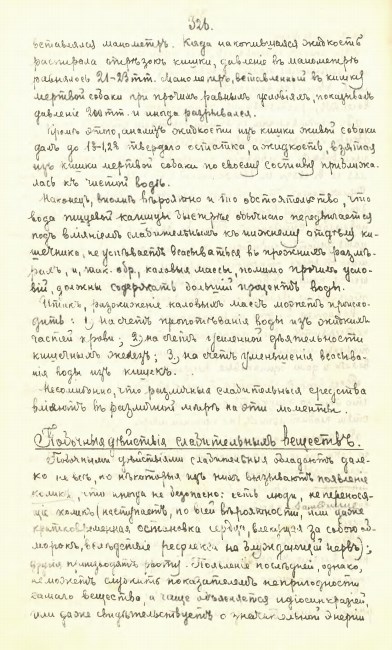 326.
вставлялся манометръ. Когда накопившаяся жидкость
растирала отрѣзокъ кишки, давленіе въ манометрѣ
равнялось 21-23 mm. Манометръ, вставленный въ кишку
мертвой собаки при прочихъ равныхъ условіяхъ, показывалъ
давленіе 200 mm. и иногда разрывался.
Кромѣ этого, анализъ жидкости изъ кишки живой собаки
далъ до твердаго остатка, а жидкость, взятая
изъ кишки мертвой собаки по своему составу приближа-
лась къ чистой водѣ.
Наконецъ, вполнѣ вѣроятно и то обстоятельство, что
вода пищевой кашицы быстрѣе обычнаго передвигается
подъ вліяніемъ слабительныхъ къ нижнему отдѣлу ки-
шечника, не успѣваетъ всасываться въ прежнихъ размѣ-
рахъ, и, так. обр., каловыя массы, помимо прочихъ усло-
вій, должны содержать большій процентъ воды.
Итакъ, разжиженіе каловыхъ массъ можетъ происхо-
дить: 1, на счетъ пропотѣванія воды изъ жидкихъ
частей крови; 2, на счетъ усиленной дѣятельности
кишечныхъ железъ; 3, на счетъ уменьшенія всасыва-
нія воды изъ кишекъ.
Несомнѣнно, что различныя слабительныя средства
вліяютъ въ различной мѣрѣ на эти моменты.
Побочныя дѣйствія слабительныхъ веществъ.
Побочными дѣйствіями слабительныя обладаютъ дале-
ко не всѣ, но нѣкоторыя изъ нихъ вызываютъ появленіе
коликъ, что иногда не безопасно: есть люди, не перенося-
щіе коликъ (наступаетъ, по всей вѣроятности, или даже
кратковременная остановка сердца, влекущая за собою об-
морокъ, вслѣдствіе рефлекса на блуждающій нервъ);
другія производятъ рвоту. Появленіе послѣдней, однако,
не можетъ служить показателемъ непригодности
самаго вещества, а чаще объясняется идіосинкразіей,
или даже свидѣтельствуетъ о значительной энергіи